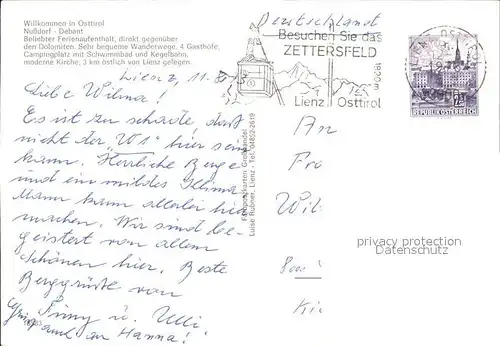 Willkommen in Osttirol
Nußdorf - Debant
Beliebter Ferienaufenthalt, direkt gegenüber
den Dolomiten. Sehr bequeme Wanderwege, 4 Gasthöfe,
Campingplatz mit Schwimmbad und Kegelbahn,
moderne Kirche, 3 km östlich von Lienz gelegen.
Deutschland
Besuchen Sie das
ZETTERSFELD
1820 m
Lienz Osttirol
REPUBLIK ÖSTERREICH
Lienz, 11.
Liebe Wilma!
Es ist zu schade, daß
nicht der "W1" hier sein
kann. Herrliche Berge
und ein mildes Klima
Man kann allerlei hier
machen. Wir sind be-
geistert von allem
Schönen hier. Beste
Berggrüße von
u. Ulli.
an Hanna!
Luise Rupner, Lienz - Tel. 04852-2619
An
Fr
Wil
800
privacy protection
Datenschutz